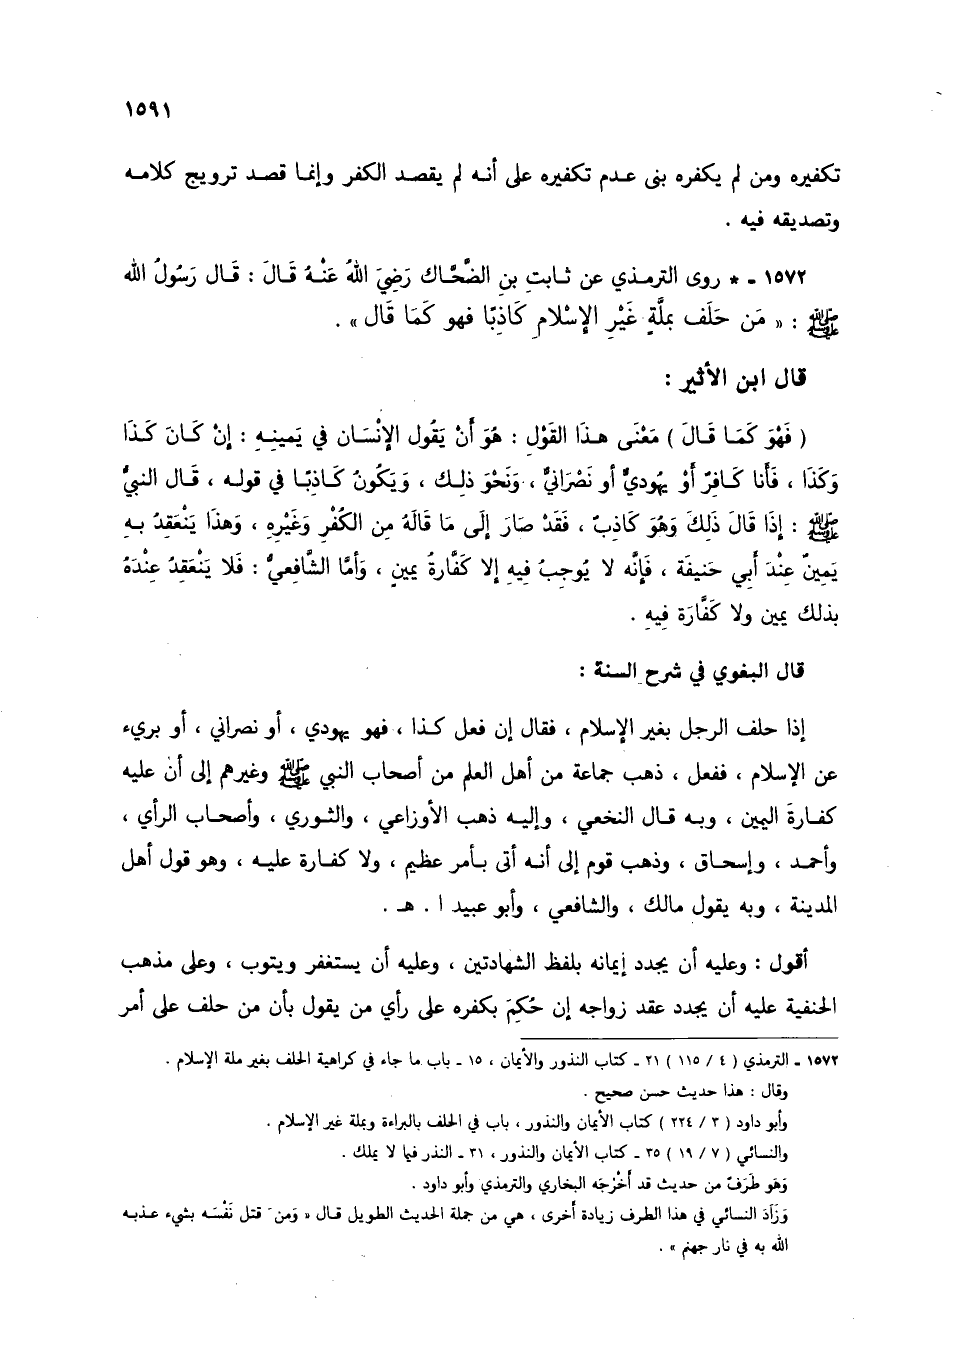 ١٥٩١
تكفيره ومن لم يكفره بنى عدم تكفيره على أنه لم يقصد الكفر وإنما قصد ترويج كلامه
وتصديقه فيه .
١٥٧٢ - * روى الترمذي عن ثابتِ بنِ الضَّحَّاك رَضِيَ اللهُ عَنْهُ قَالَ : قَال رَسُولُ الله
ﷺ : « مَن حَلَف بملَّةٍ غَيْرِ الإِسْلام كَاذِبًا فهو كَمَا قَال » .
قال ابن الأثير :
( فَهْوَ كَمَا قَالَ ) مَعْنَى هذَا القَوْلِ : هُوَ أَنْ يَقُول الإِنْسَان فِي يَمِينِهِ : إِنْ كَانَ كَذَا
وَكَذَا ، فَأَنا كَافِرٌ أَوْ يهُوديٌّ أو نَصْرَانيٌّ ، وَنَحْوَ ذلِك ، وَيَكُونُ كَاذِبًا في قوله ، قَال النبيُّ
ﷺ : إِذَا قَالَ ذَلِكَ وَهُوَ كَاذِبٌ ، فَقَدْ صَارَ إِلَى مَا قَالَهُ مِن الكُفْرِ وَغَيْرِهِ ، وَهذَا يَنْعَقِدُ بِهِ
يَمِينٌ عِنْدَ أَبِي حَنِيفَة ، فَإِنَّه لا يُوجِبُ فِيهِ إلا كَفَّارةَ يمينٍ ، وَأمَّا الشَّافِعيُّ : فَلا يَنْعَقِدُ عِنْدَهُ
بذلك يمين ولا كَفَّارَة فِيهِ .
قال البغوي في شرح السنة :
إذا حلف الرجل بغير الإسلام ، فقال إن فعل كذا ، فهو يهودي ، أو نصراني ، أو بريء
عن الإسلام ، ففعل ، ذهب جماعة من أهل العلم من أصحاب النبي ﷺ وغيرهم إلى أن عليه
كفارةَ اليمين ، وبه قال النخعي ، وإليه ذهب الأوزاعي ، والثوري ، وأصحاب الرأي ،
وأحمد ، وإسحاق ، وذهب قوم إلى أنه أتى بأمر عظيم ، ولا كفارة عليه ، وهو قول أهل
المدينة ، وبه يقول مالك ، والشافعي ، وأبو عبيد ا . هـ .
أقول : وعليه أن يجدد إيمانه بلفظ الشهادتين ، وعليه أن يستغفر ويتوب ، وعلى مذهب
الحنفية عليه أن يجدد عقد زواجه إن حُكِمَ بكفره على رأي من يقول بأن من حلف على أمر
١٥٧٢ - الترمذي ( ٤ / ١١٥ ) ٢١ - كتاب النذور والأيمان ، ١٥ - باب ما جاء في كراهية الحلف بغير ملة الإسلام .
وقال : هذا حديث حسن صحيح .
وأبو داود ( ٣ / ٢٢٤ ) كتاب الأيمان والنذور ، باب في الحلف بالبراءة وبملة غير الإسلام .
والنسائي ( ٧ / ١٩ ) ٣٥ - كتاب الأيمان والنذور ، ٣١ - النذر فيما لا يملك .
وَهو طَرَفٌ من حديث قد أخْرْجَه البخاري والترمذي وأبو داود .
وَزَادَ النسائي في هذا الطرف زيادة أخرى ، هي من جملة الحديث الطويل قال « وَمن قتل نَفْسَه بشيء عذبه
الله به في نار جهنم » .